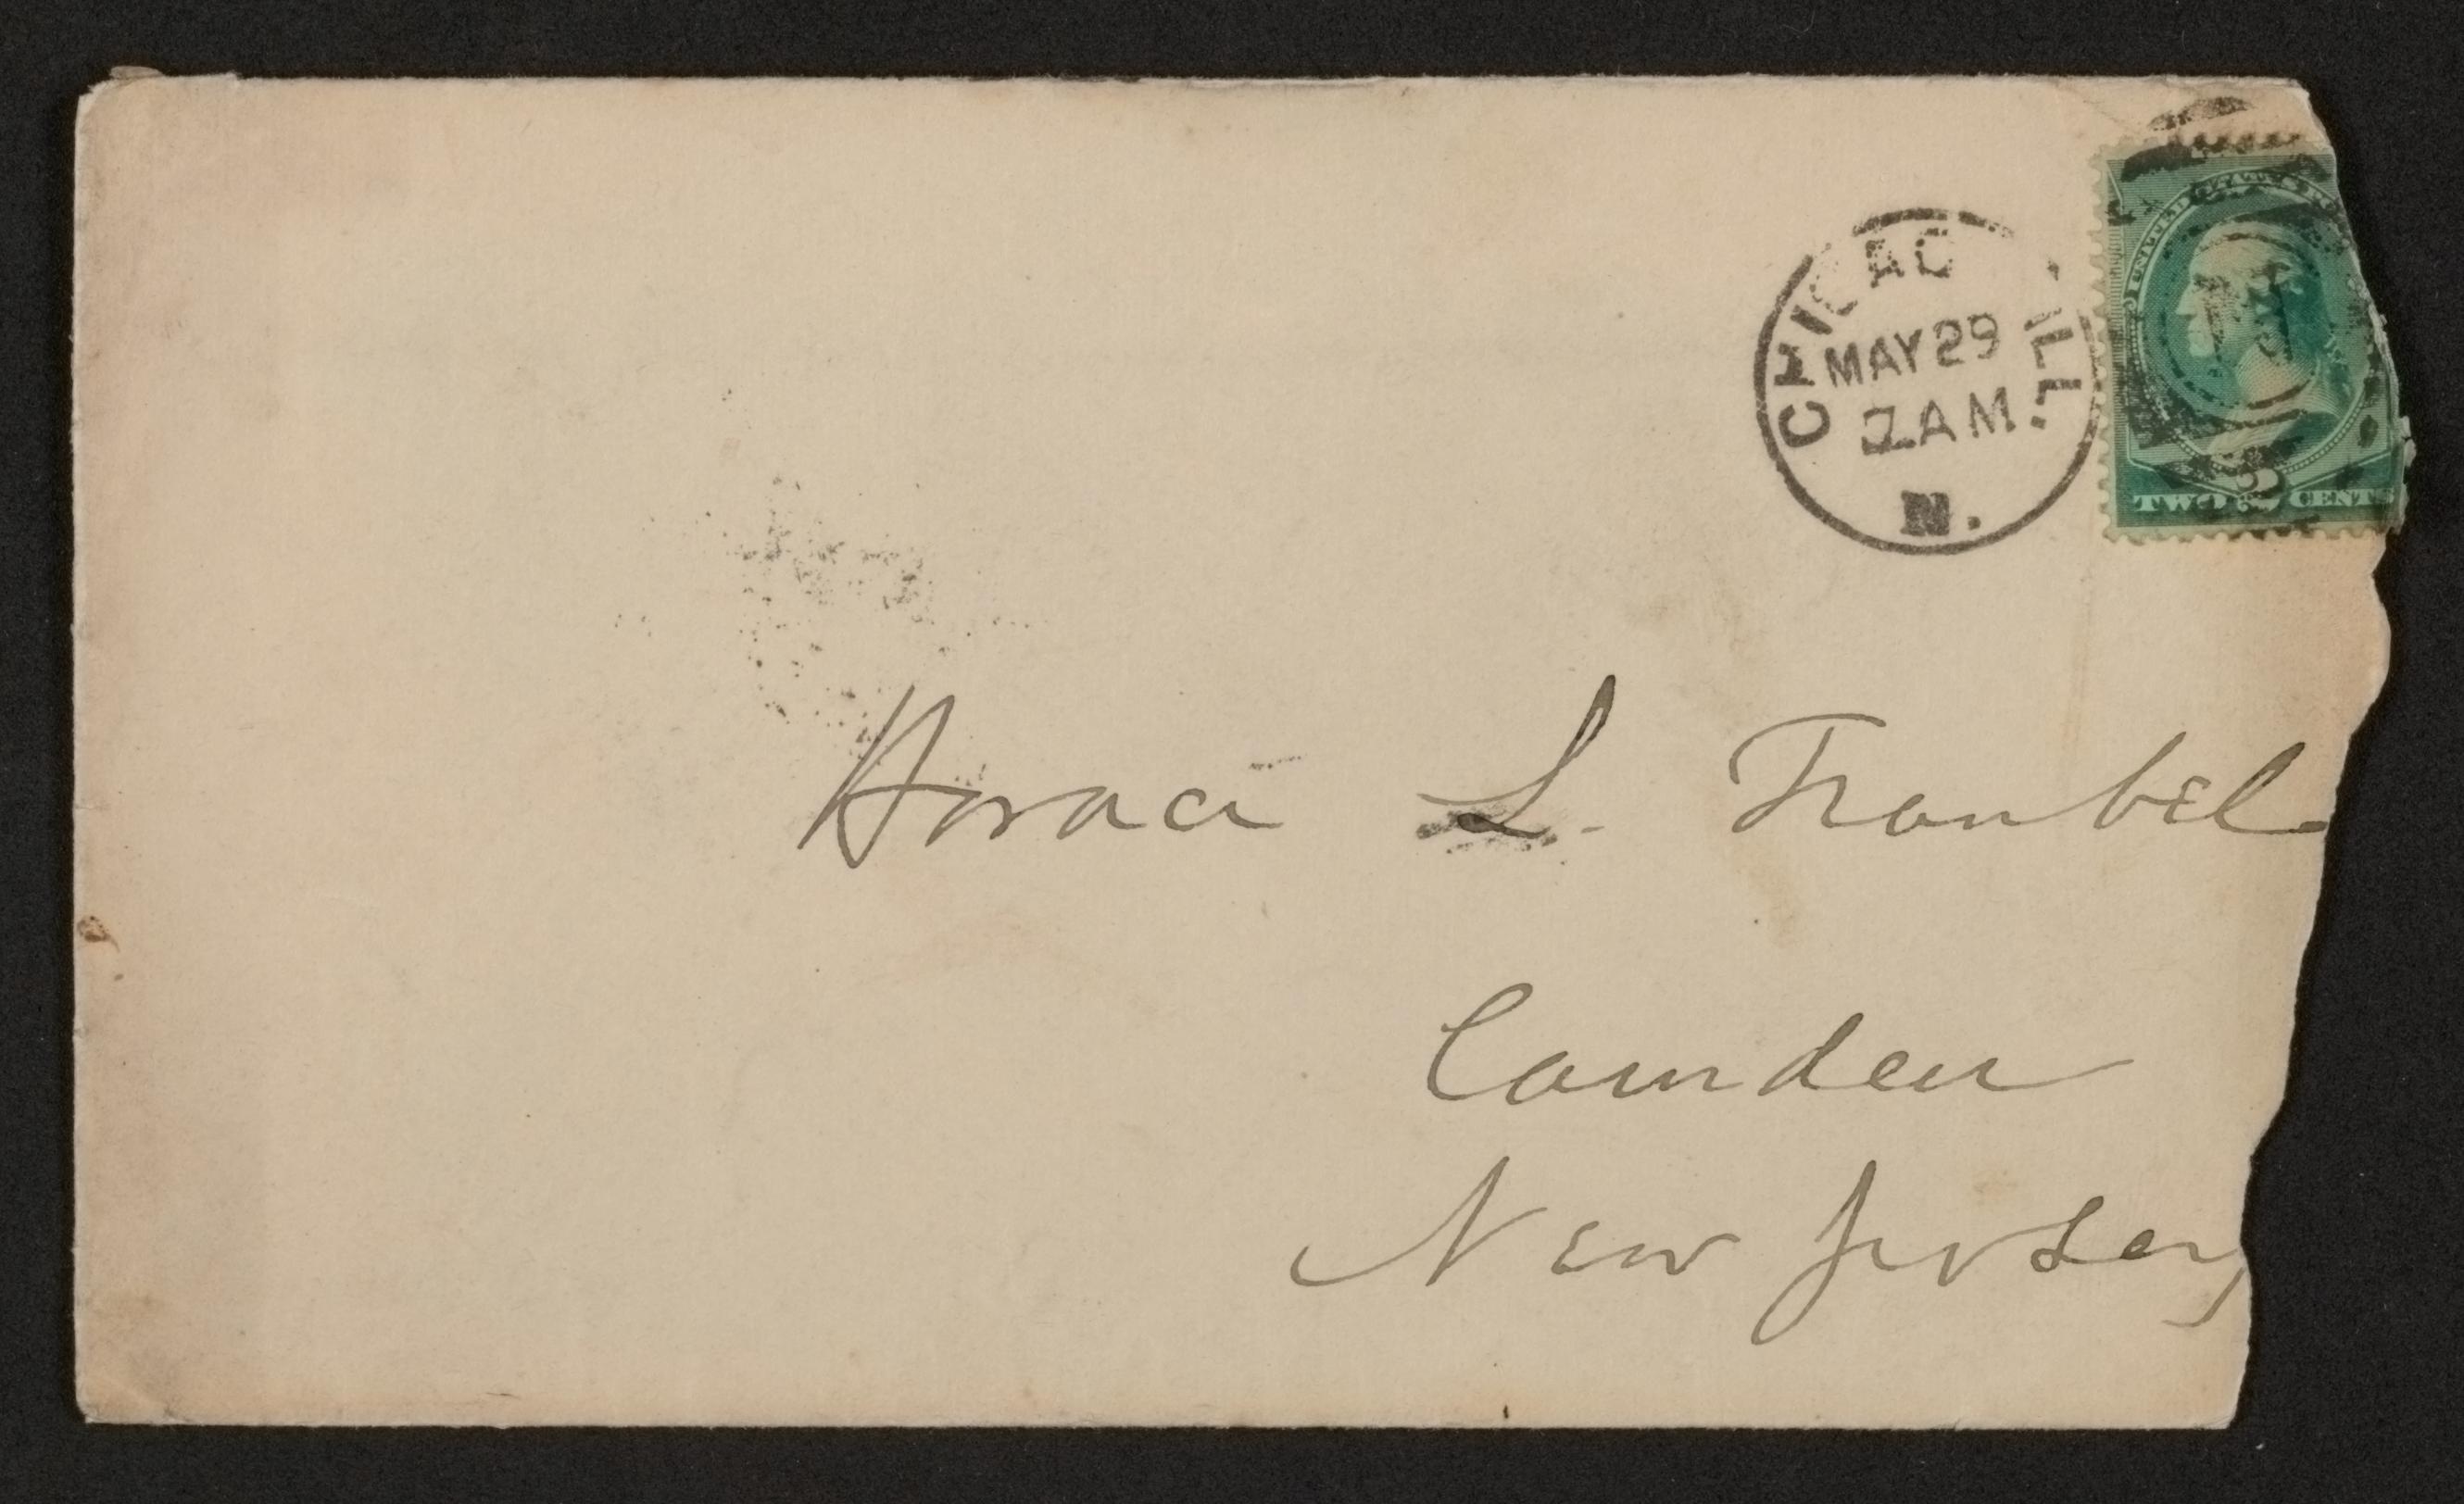 CHICAG ILL.
MAY 29
7 AM
N.
UNITED STATES
TWO 2 CENTS
Horace L. Traubel
Camden
New Jersey